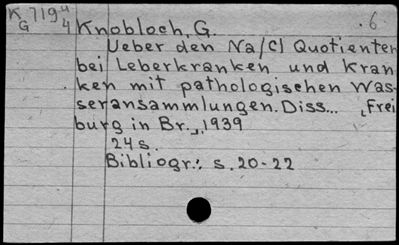 K 7194 Knobloch, G. .6.
G 4
Ueber den Na/Cl Quotienten
bei Leberkranken und Kran
ken mit pathologischen Was-
seransammlungen. Diss... „Frei
burg in Br., 1939
24 s.
Bibliogr.: s. 20-22